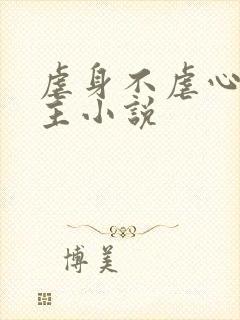 虐身不虐心
主小説
博美